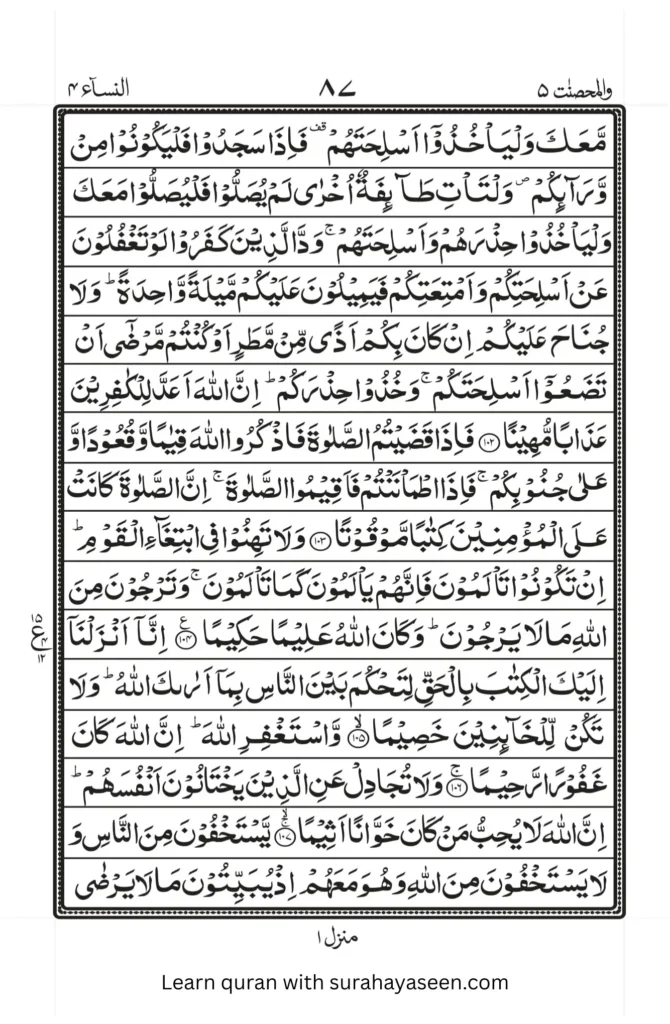 والمحصنت ۵ ۸۷ النسآء ۴
مَّعَكَ وَلۡيَاۡخُذُوۡۤا اَسۡلِحَتَهُمۡ ۟ فَاِذَا سَجَدُوۡا فَلۡيَكُوۡنُوۡا مِنۡ
وَّرَآئِكُمۡ ۪ وَلۡتَاۡتِ طَآئِفَةٌ اُخۡرٰى لَمۡ يُصَلُّوۡا فَلۡيُصَلُّوۡا مَعَكَ
وَلۡيَاۡخُذُوۡا حِذۡرَهُمۡ وَاَسۡلِحَتَهُمۡ ۚ وَدَّ الَّذِيۡنَ كَفَرُوۡا لَوۡ تَغۡفُلُوۡنَ
عَنۡ اَسۡلِحَتِكُمۡ وَاَمۡتِعَتِكُمۡ فَيَمِيۡلُوۡنَ عَلَيۡكُمۡ مَّيۡلَةً وَّاحِدَةً ؕ وَلَا
جُنَاحَ عَلَيۡكُمۡ اِنۡ كَانَ بِكُمۡ اَذًى مِّنۡ مَّطَرٍ اَوۡ كُنۡتُمۡ مَّرۡضٰۤى اَنۡ
تَضَعُوۡۤا اَسۡلِحَتَكُمۡ ۚ وَخُذُوۡا حِذۡرَكُمۡ ؕ اِنَّ اللّٰهَ اَعَدَّ لِلۡكٰفِرِيۡنَ
عَذَابًا مُّهِيۡنًا ۝۱۰۲ فَاِذَا قَضَيۡتُمُ الصَّلٰوةَ فَاذۡكُرُوا اللّٰهَ قِيٰمًا وَّقُعُوۡدًا وَّ
عَلٰى جُنُوۡبِكُمۡ ۚ فَاِذَا اطۡمَاۡنَنۡتُمۡ فَاَقِيۡمُوا الصَّلٰوةَ ۚ اِنَّ الصَّلٰوةَ كَانَتۡ
عَلَى الۡمُؤۡمِنِيۡنَ كِتٰبًا مَّوۡقُوۡتًا ۝۱۰۳ وَلَا تَهِنُوۡا فِى ابۡتِغَآءِ الۡقَوۡمِ ؕ
اِنۡ تَكُوۡنُوۡا تَاۡلَمُوۡنَ فَاِنَّهُمۡ يَاۡلَمُوۡنَ كَمَا تَاۡلَمُوۡنَ ۚ وَتَرۡجُوۡنَ مِنَ
اللّٰهِ مَا لَا يَرۡجُوۡنَ ؕ وَكَانَ اللّٰهُ عَلِيۡمًا حَكِيۡمًا ۝۱۰۴ ع اِنَّاۤ اَنۡزَلۡنَاۤ
اِلَيۡكَ الۡكِتٰبَ بِالۡحَقِّ لِتَحۡكُمَ بَيۡنَ النَّاسِ بِمَاۤ اَرٰٮكَ اللّٰهُ ؕ وَلَا
تَكُنۡ لِّلۡخَآئِنِيۡنَ خَصِيۡمًا ۝۱۰۵ ۙ وَّاسۡتَغۡفِرِ اللّٰهَ ؕ اِنَّ اللّٰهَ كَانَ
غَفُوۡرًا رَّحِيۡمًا ۝۱۰۶ ۚ وَلَا تُجَادِلۡ عَنِ الَّذِيۡنَ يَخۡتَانُوۡنَ اَنۡفُسَهُمۡ ؕ
اِنَّ اللّٰهَ لَا يُحِبُّ مَنۡ كَانَ خَوَّانًا اَثِيۡمًا ۝۱۰۷ ۚۙ يَّسۡتَخۡفُوۡنَ مِنَ النَّاسِ وَ
لَا يَسۡتَخۡفُوۡنَ مِنَ اللّٰهِ وَهُوَ مَعَهُمۡ اِذۡ يُبَيِّتُوۡنَ مَا لَا يَرۡضٰى
۱۵
ع ۴
۱۲
منزل ۱
Learn quran with surahayaseen.com